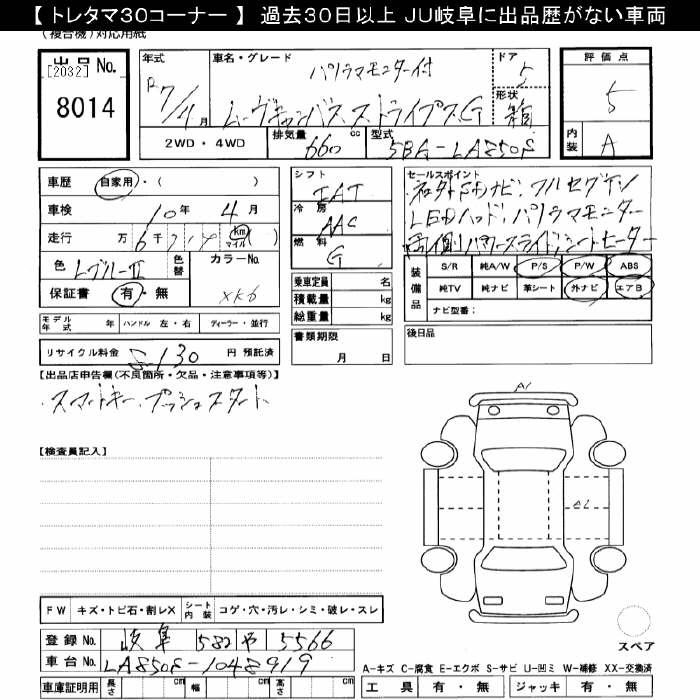 【 トレタマ30コーナー 】 過去30日以上 JU岐阜に出品歴がない車両
(複合機)対応用紙
出品No.
[2032]
8014
年式
R7/4月
車名・グレード
パノラマモニター付
ムーヴキャンバス ストライプスG
ドア
5
形状
箱
評価点
5
内装
A
2WD・4WD
排気量
660
cc
型式
5BA-LA850S
車歴
自家用・( )
車検
10年 4月
走行
万 6千
km
マイル
色
LブルーII
色替
カラーNo.
XK6
保証書
有・無
モデル年式
年
ハンドル 左・右
ディーラー・並行
リサイクル料金
5-130
円 預託済
シフト
IAT
冷房
AAC
燃料
G
乗車定員
名
積載量
kg
総重量
kg
書類期限
月 日
セールスポイント
ネオトSDナビ、フルセグTV
LEDヘッド、パノラマモニター
両側パワースライド、シートヒーター
装備品
S/R
純A/W
P/S
P/W
ABS
純TV
純ナビ
革シート
外ナビ
エアB
ナビ型番:
後日品
【出品店申告欄(不良箇所・欠品・注意事項等)】
・スマートキー・プッシュスタート
【検査員記入】
A1
A2
FW
キズ・トビ石・割レX
シート内装
コゲ・穴・汚レ・シミ・破レ・スレ
登録No.
岐阜 582 や 5566
車台No.
LA850S-1048919
車庫証明用
長さ
cm
幅
cm
高さ
cm
スペア
A-キズ C-腐食 E-エクボ S-サビ U-凹ミ W-補修 XX-交換済
工具
有・無
ジャッキ
有・無